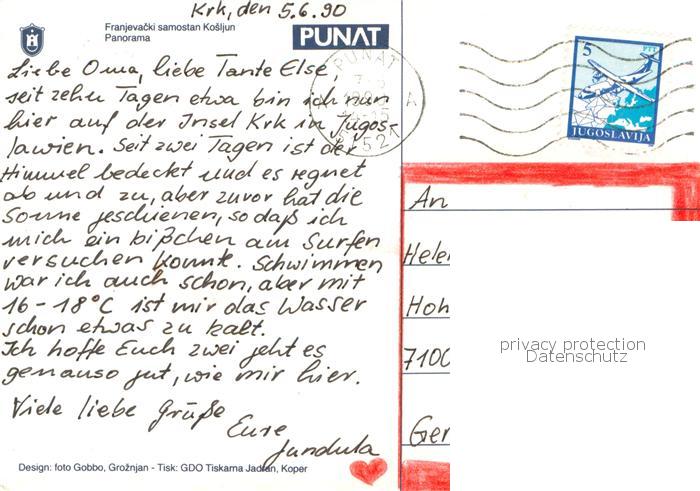 Krk, den 5.6.90
Franjevački samostan Košljun
Panorama
PUNAT
Liebe Oma, liebe Tante Else,
seit zehn Tagen etwa bin ich nun
hier auf der Insel Krk in Jugos-
lawien. Seit zwei Tagen ist der
Himmel bedeckt und es regnet
ab und zu, aber zuvor hat die
Sonne geschienen, so daß ich
mich ein bißchen am Surfen
versuchen konnte. Schwimmen
war ich auch schon, aber mit
16 - 18°C ist mir das Wasser
schon etwas zu kalt.
Ich hoffe Euch zwei geht es
genauso gut, wie mir hier.
Viele liebe Grüße
Eure
Jundula
Design: foto Gobbo, Grožnjan - Tisk: GDO Tiskarna Jadran, Koper
PUNAT
A
5
PTT
JUGOSLAVIJA
An
Hele
Hoh
7100
Ger
privacy protection
Datenschutz